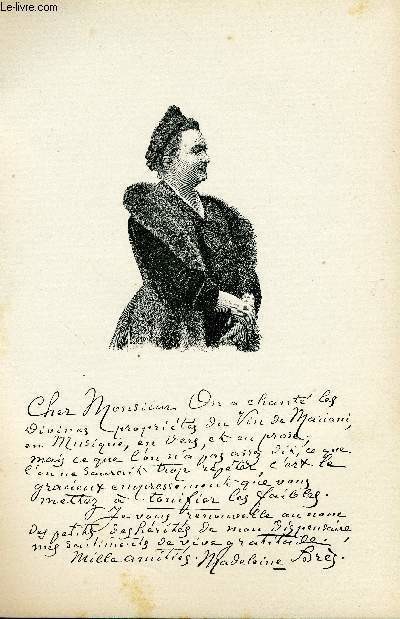 Le-livre.com
Cher Monsieur. On a chanté les
Divines propriétés du Vin de Mariani,
en Musique, en vers, et en prose;
mais ce que l'on n'a pas assez dit, ce que
l'on ne saurait trop répéter, c'est le
gracieux empressement que vous
mettez à tonifier les faibles.
Je vous renouvelle au nom
des petits déshérités de mon Dispensaire
mes sentiments de vive gratitude.
Mille amitiés. Madeleine Brès.